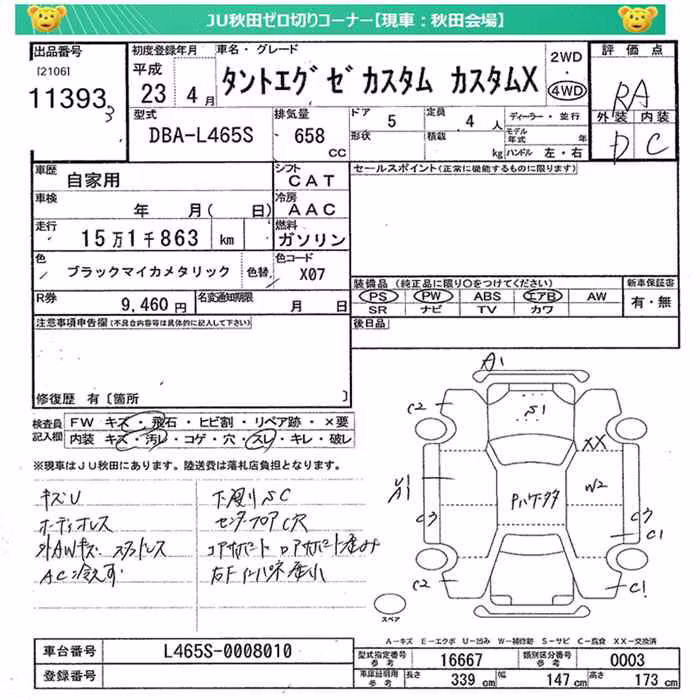 JU秋田ゼロ切りコーナー【現車：秋田会場】
出品番号
[2106]
11393
3
初度登録年月
平成
23 4月
車名・グレード
タントエグゼ カスタム カスタムX
2WD
・
4WD
評価点
RA
外装 内装
D C
型式
DBA-L465S
排気量
658
CC
ドア 5
形状
定員 4 人
積載 kg
ディーラー・並行
モデル年式 年
ハンドル 左・右
車歴
自家用
シフト
CAT
セールスポイント(正常に機能するものに限ります)
車検
年 月( 日)
冷房
AAC
走行
15万1千863 km
燃料
ガソリン
色
ブラックマイカメタリック
色替
色コード
X07
装備品 (純正品に限り○をつけてください)
PS PW ABS エアB AW
SR ナビ TV カワ
新車保証書
有・無
R券
9,460円
名変通知期限
月 日
後日品
注意事項申告欄(不具合内容等は具体的に記入して下さい)
修復歴 有〔箇所 〕
検査員記入欄
FW キズ・飛石・ヒビ割・リペア跡・×要
内装 キズ・汚レ・コゲ・穴・スレ・キレ・破レ
※現車はJU秋田にあります。陸送費は落札店負担となります。
キズU
オーディオレス
外AWキズ・スタットレス
AC冷えず
下廻りSC
センターフロアC穴
コアサポート
A1
C2
S1
XX
W2
U1
A1
C3
Pハワータタ
C3
C1
C2
C1
スペア
A－キズ E－エクボ U－凹み W－補修跡 S－サビ C－腐食 XX－交換済
車台番号
L465S-0008010
登録番号
型式指定番号 参考
16667
類別区分番号 参考
0003
車庫証明用 参考
長さ 339 cm
幅 147 cm
高さ 173 cm